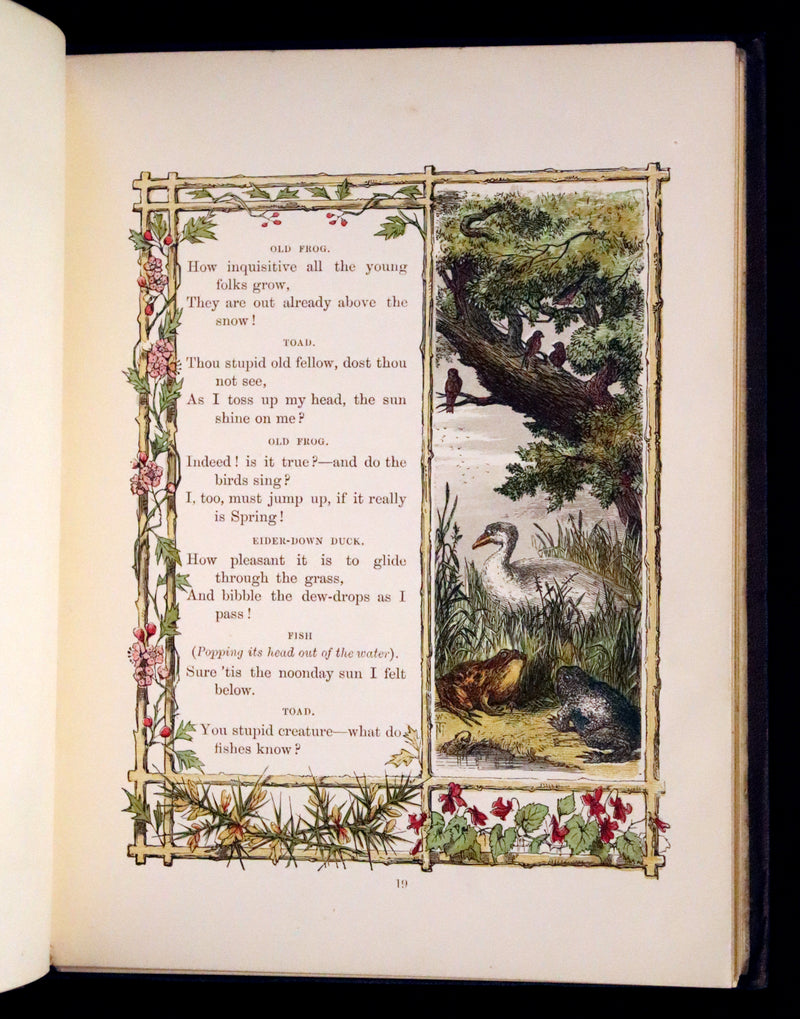 OLD FROG.
How inquisitive all the young
folks grow,
They are out already above the
snow!
TOAD.
Thou stupid old fellow, dost thou
not see,
As I toss up my head, the sun
shine on me?
OLD FROG.
Indeed! is it true?—and do the
birds sing?
I, too, must jump up, if it really
is Spring!
EIDER-DOWN DUCK.
How pleasant it is to glide
through the grass,
And bibble the dew-drops as I
pass!
FISH
(Popping its head out of the water).
Sure 'tis the noonday sun I felt
below.
TOAD.
You stupid creature—what do
fishes know?
19